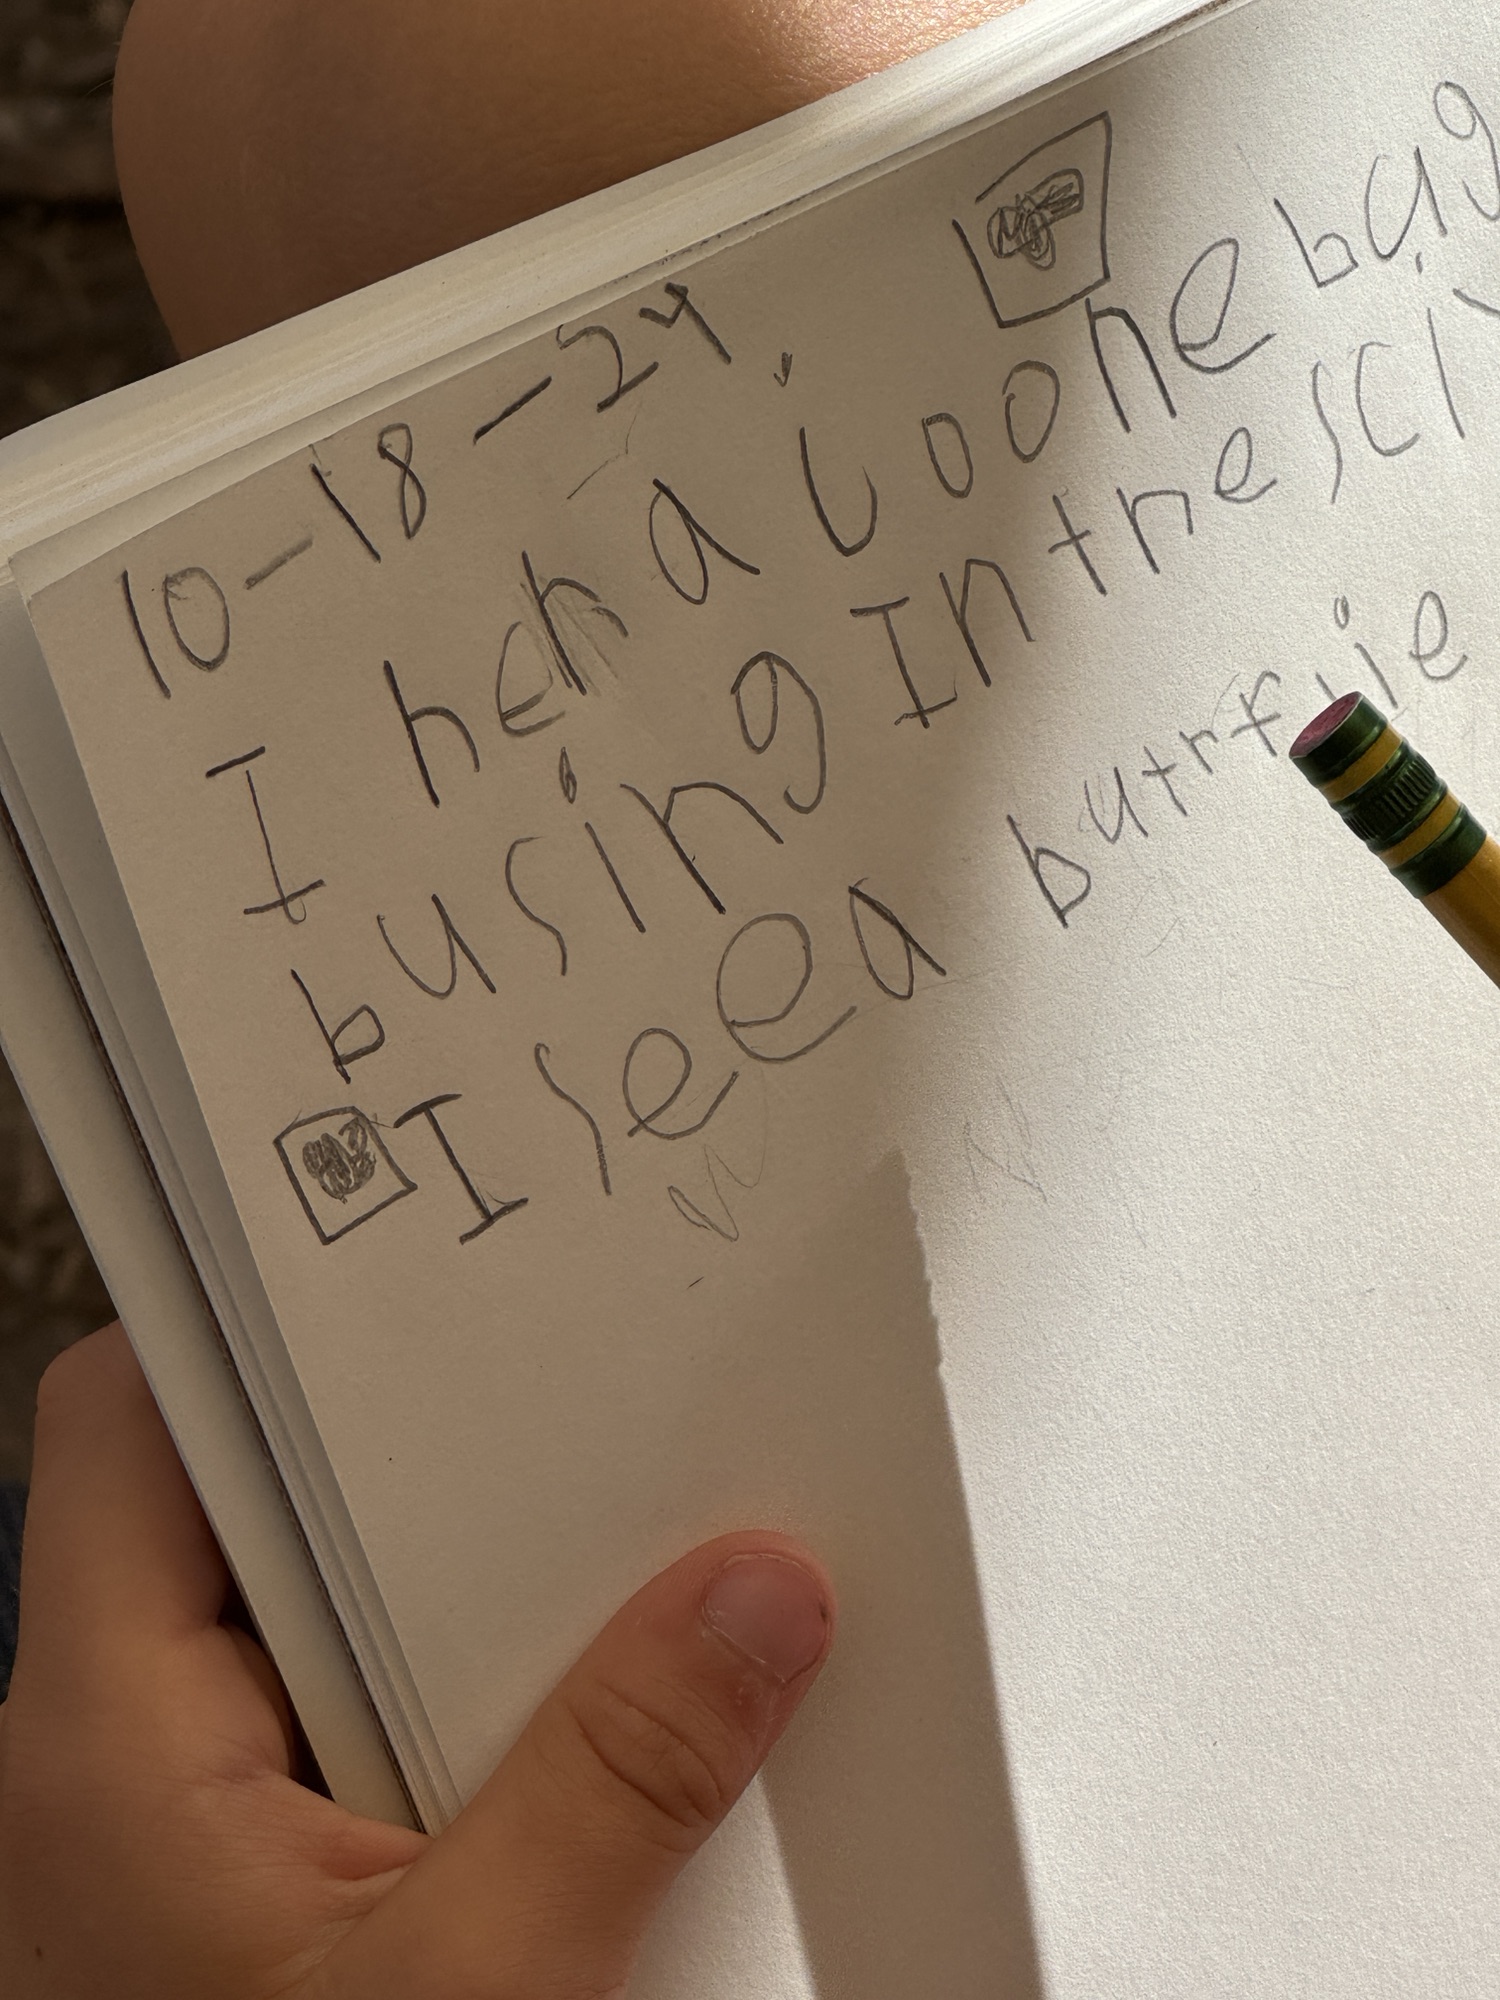 10-18-24
I her a loone bug
busing In the sci
I see a butrflie